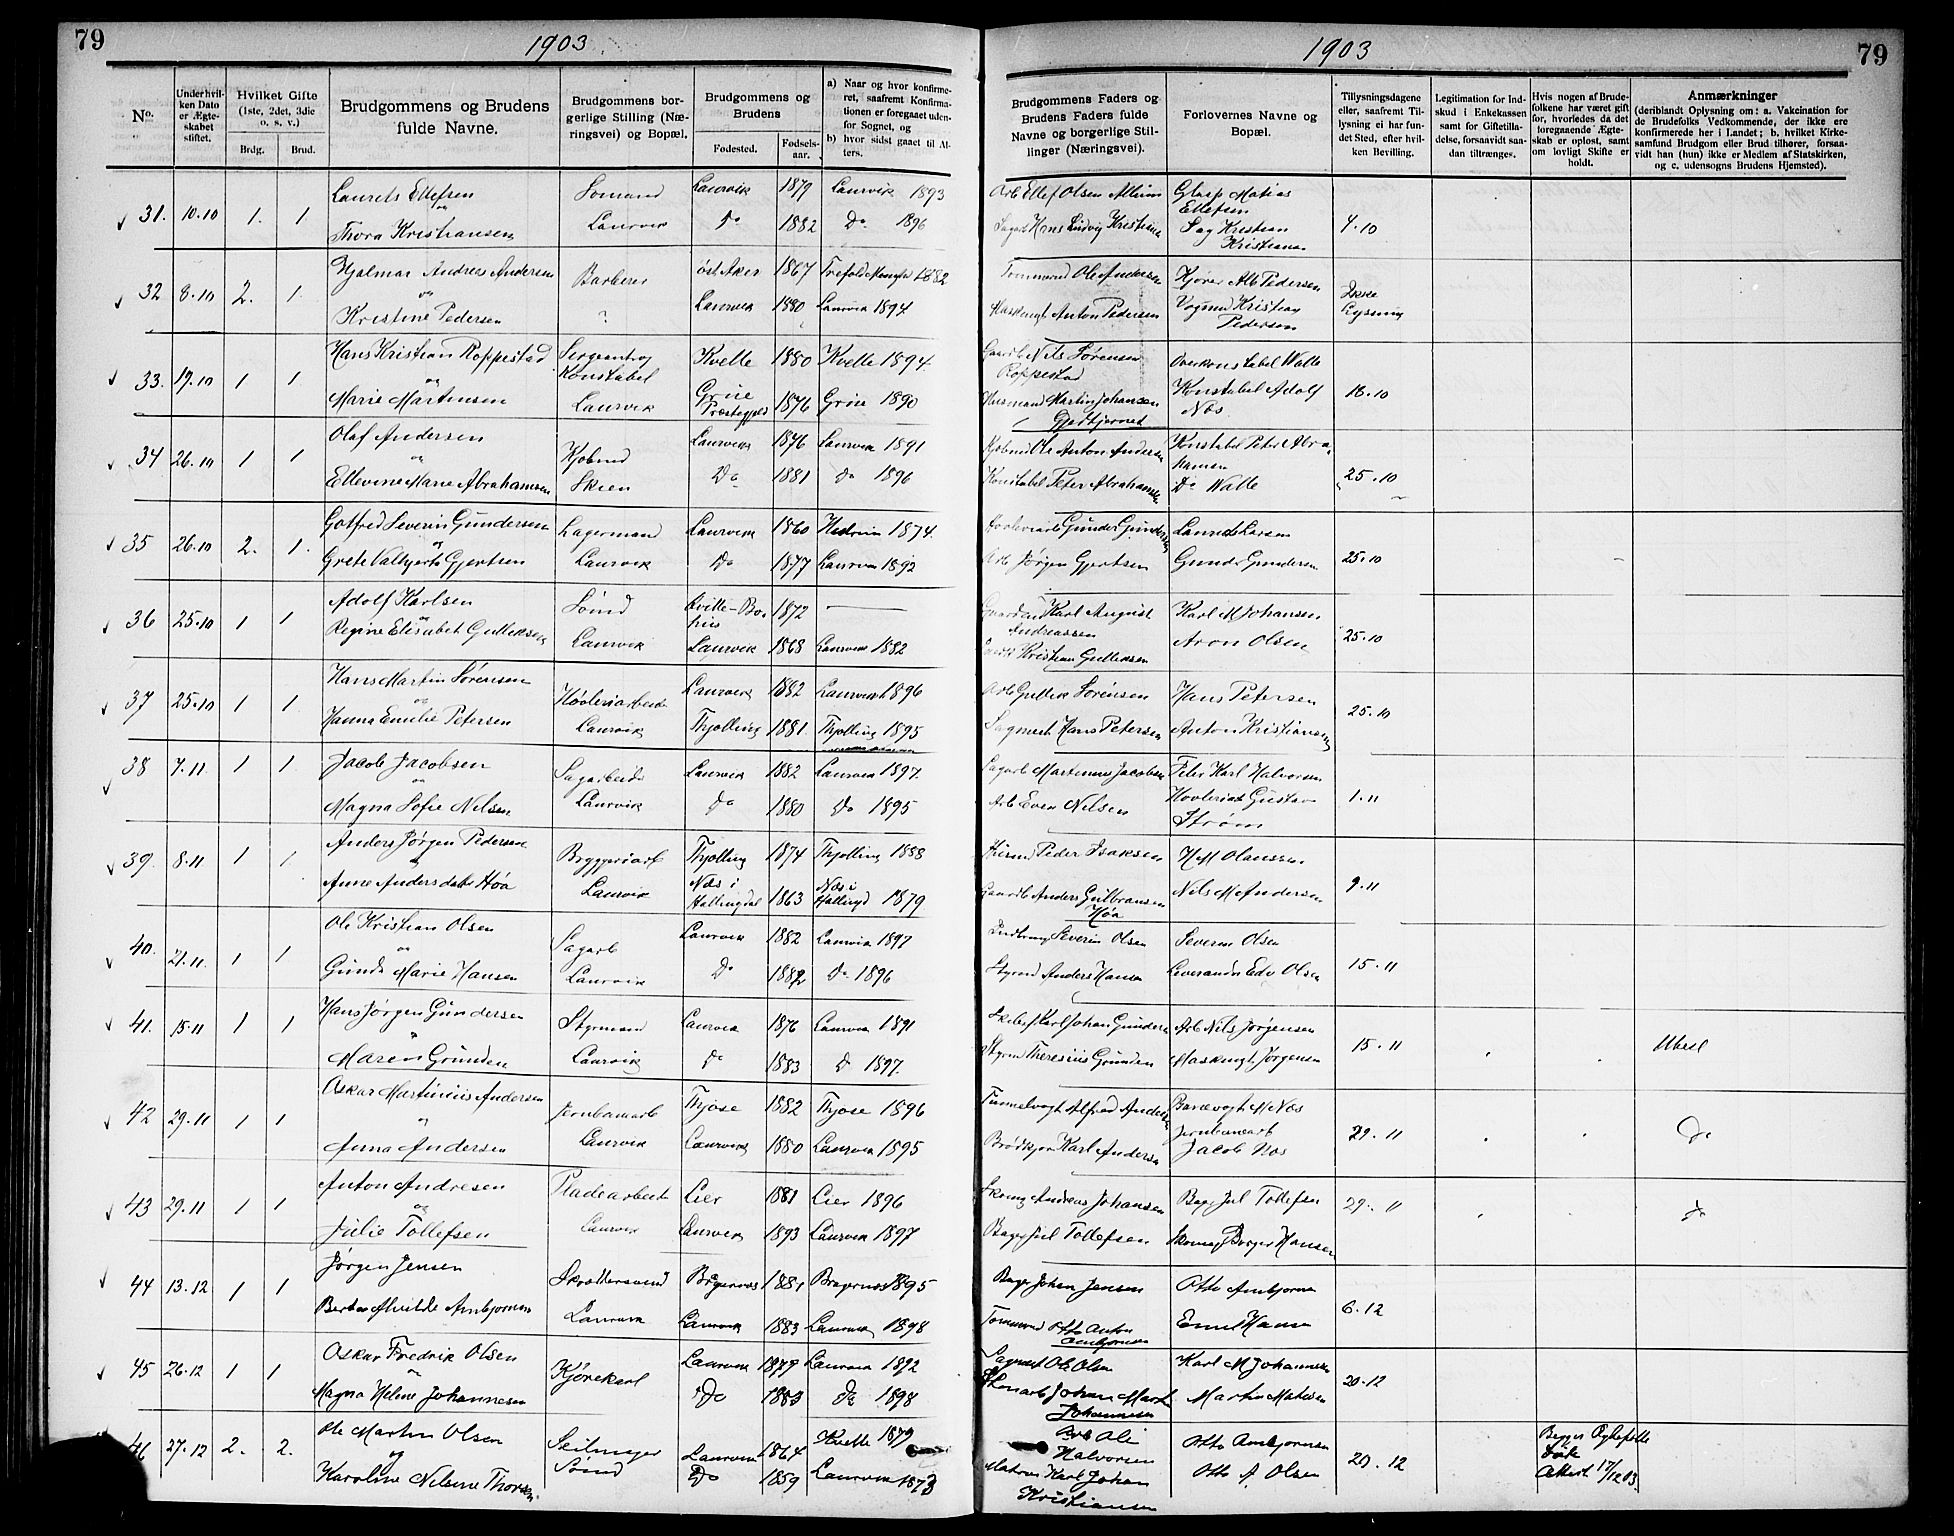 79
1903
No.
Underhvilken Dato er Ægteskabet stiftet.
Hvilket Gifte (1ste, 2det, 3die o. s. v.)
Brdg.
Brud.
Brudgommens og Brudens fulde Navne.
Brudgommens borgerlige Stilling (Næringsvei) og Bopæl.
Brudgommens og Brudens
Fødested.
Fødselsaar.
a) Naar og hvor konfirmeret, saafremt Konfirmationen er foregaaet udenfor Sognet, og
b) hvor sidst gaaet til Alters.
31. 10.10 1. 1 Laurits Ellefsen Sømand Laurvik 1879 Laurvik 1893
og
Thora Kristiansen Laurvik Do 1882 Do 1896
32 8.10 2. 1. Hjalmar Andreas Andersen Barberer Øst. Aker 1867 1882
og
Kristine Pedersen ? Laurvik 1880 Laurvik 1894
33. 19.10 1 1 Hans Kristian Roppestad Sergeant og Konstabel Kvelle 1880 Kvelle 1894
og
Marie Martinsen Laurvik Grue Præstegjeld 1876 Grue 1890
34 26.10 1 1 Olaf Andersen Kjøbmd Laurvik 1876 Laurvik 1891
og
Ellevine Marie Abrahamsen Skien Do 1881 Do 1896
35 26.10 2. 1. Gotfred Severin Gundersen Lagermand Laurvik 1860 Hedrum 1874.
og
Grete Valborg Gjertsen Laurvik Do 1877 Laurvik 1892
36 25.10 1 1 Adolf Karlsen Sømd Kville-Bohus 1872
og
Regine Elisabet Gulliksen Laurvik Laurvik 1868 Laurvik 1882
37 25.10 1 1. Hans Martin Sørensen Høvleriarbeid Laurvik 1882 Laurvik 1896
og
Hanna Emilie Petersen Laurvik Thjølling 1881. Thjølling 1895
38 7.11 1 1. Jacob Jacobsen Sagarbeider Laurvik 1882 Laurvik 1897.
og
Magna Sofie Nilsen Laurvik Do 1880 Do 1895
39. 8.11 1 1 Anders Jørgen Pedersen Bryggeriarb Thjølling 1874 Thjølling 1888
og
Anne Andersdatter Høa Laurvik Næs i Hallingdal 1863 Næs i Hallingd 1879
40. 21.11. 1 1 Ole Kristian Olsen Sagarb Laurvik 1882 Laurvik 1897
og
Gunda Marie Hansen Laurvik Do 1882 Do 1896
41. 15.11 1 1 Hans Jørgen Gundersen Styrmand Laurvik 1876 Laurvik 1891
Maren Grunden Laurvik Do 1883 Do 1897.
42 29.11 1 1 Oskar Martinius Andersen Jernbanearb Thjose 1882 Thjose 1896
og
Anna Andersen Laurvik Laurvik 1880 Laurvik 1895
43 29.11 1 1 Anton Andresen Pladearbeid Lier 1881 Lier 1896
og
Julie Tollefsen Laurvik Laurvik 1893 Laurvik 1897
44 13.12 1 1 Jørgen Jensen Skræddersvend Bragernes 1881 Bragernes 1895
Alvilde Arnbjørnsen Laurvik Laurvik 1883 Laurvik 1898
45 26.12 1 1 Oskar Fredrik Olsen Kjørekarl Laurvik 1879 Laurvik 1892
og
Magna Heline Johannesen Do 1883 Do 1898
46 27.12 2. 2. Ole Martin Olsen Seilmager Laurvik 1864 Kvelle 1879
og
Karoline Nilsine Thorsen. Sømd Do 1859 Laurvik 1873
1903
79
Brudgommens Faders og Brudens Faders fulde Navne og borgerlige Stillinger (Næringsvei).
Forlovernes Navne og Bopæl.
Tillysningsdagene eller, saafremt Tillysning ei har fundet Sted, efter hvilken Bevilling.
Legitimation for Indskud i Enkekassen samt for Giftetilladelse, forsaavidt saadan tiltrænges.
Hvis nogen af Brudefolkene har været gift før, hvorledes da det foregaaende Ægteskab er opløst, samt om lovligt Skifte er holdt.
Anmærkninger
(deriblandt Oplysning om: a. Vakcination for de Brudefolks Vedkommende, der ikke ere konfirmerede her i Landet; b. hvilket Kirkesamfund Brudgom eller Brud tilhører, forsaavidt han (hun) ikke er Medlem af Statskirken, og c. udensogns Brudens Hjemsted).
Arb Ellef Olsen Glasp Matias Ellefsen
Sagarb Hans Ludvig Kristiansen Sag Kristian Kristiansen 4.10
Tømmermd Ole Andersen Kjører Alb Pedersen Ikke Lysning
Maskmgt Anton Pedersen Vognmd Kristian Pedersen
Gaardb Nils Sørensen Roppestad Overkonstabel Walle
Husmand Martin Johansen Konstabel Adolf Næs 18.10
Kjøbmd Ole Anton Andersen Konstabel Peter Abrahamsen
Konstabel Peter Abrahamsen Do Walle 25.10
Høvleriarb Gunder Gundersen Laurits Larsen
Arb Jørgen Gjertsen Gunder Gundersen 25.10
Karl August Andreassen Karl M Johansen
Kristian Gulliksen Aron Olsen 25.10
Arb Gullik Sørensen Hans Petersen
Sagmest Hans Petersen Anton Kristiansen 25.10
Sagarb Martinus Jacobsen Peter Karl Halvorsen
Arb Even Nilsen Høvleriarb Gustav Strøm 1.11
Husmd Peder Isaksen H M Olaussen
Gaardb Anders Gulbransen Høa Nils M Andersen 9.11
Severin Olsen Severin Olsen
Styrmd Anders Hansen Leverandør Edv Olsen 15.11
Skibsf Karl Johan Gundersen Arb Nils Jørgensen
Styrm Theresius Grunden Maskmgt Jørgensen 15.11
Tunnelvogt Alfred Andersen Banevogt M Næs
Brødkjører Karl Andersen Jernbanearb Jacob Næs 29.11 Do
Skomg Andreas Johansen Bager Jul Tollefsen
Bager Jul Tollefsen Skomag Borger Hansen 29.11 Do
Bager Johan Jensen Otto Arnbjørnsen
Tømmermd Otto Anton Arnbjørnsen Hansen 6.12
Sagmest Ole Olsen Karl M Johannesen
Johan Martin Johannesen Martin Mathisen 20.12
Arb Ole Halvorsen Otto Arnbjørnsen
Matros Karl Johan Kristiansen Otto A. Olsen 20.12
Begges Ægtefelle døde Attest 17/12 03